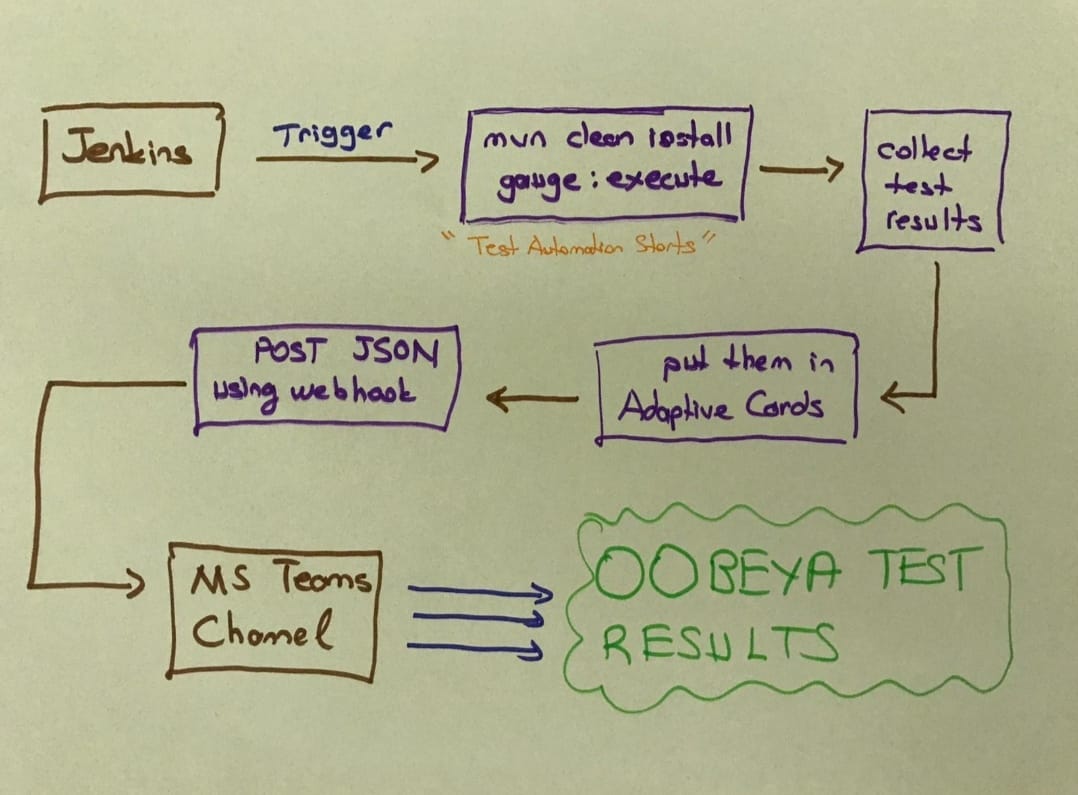 Jenkins
Trigger
mvn clean install
gauge : execute
"Test Automation Starts"
collect
test
results
POST JSON
using webhook
put them in
Adaptive Cards
MS Teams
Channel
OOBEYA TEST
RESULTS